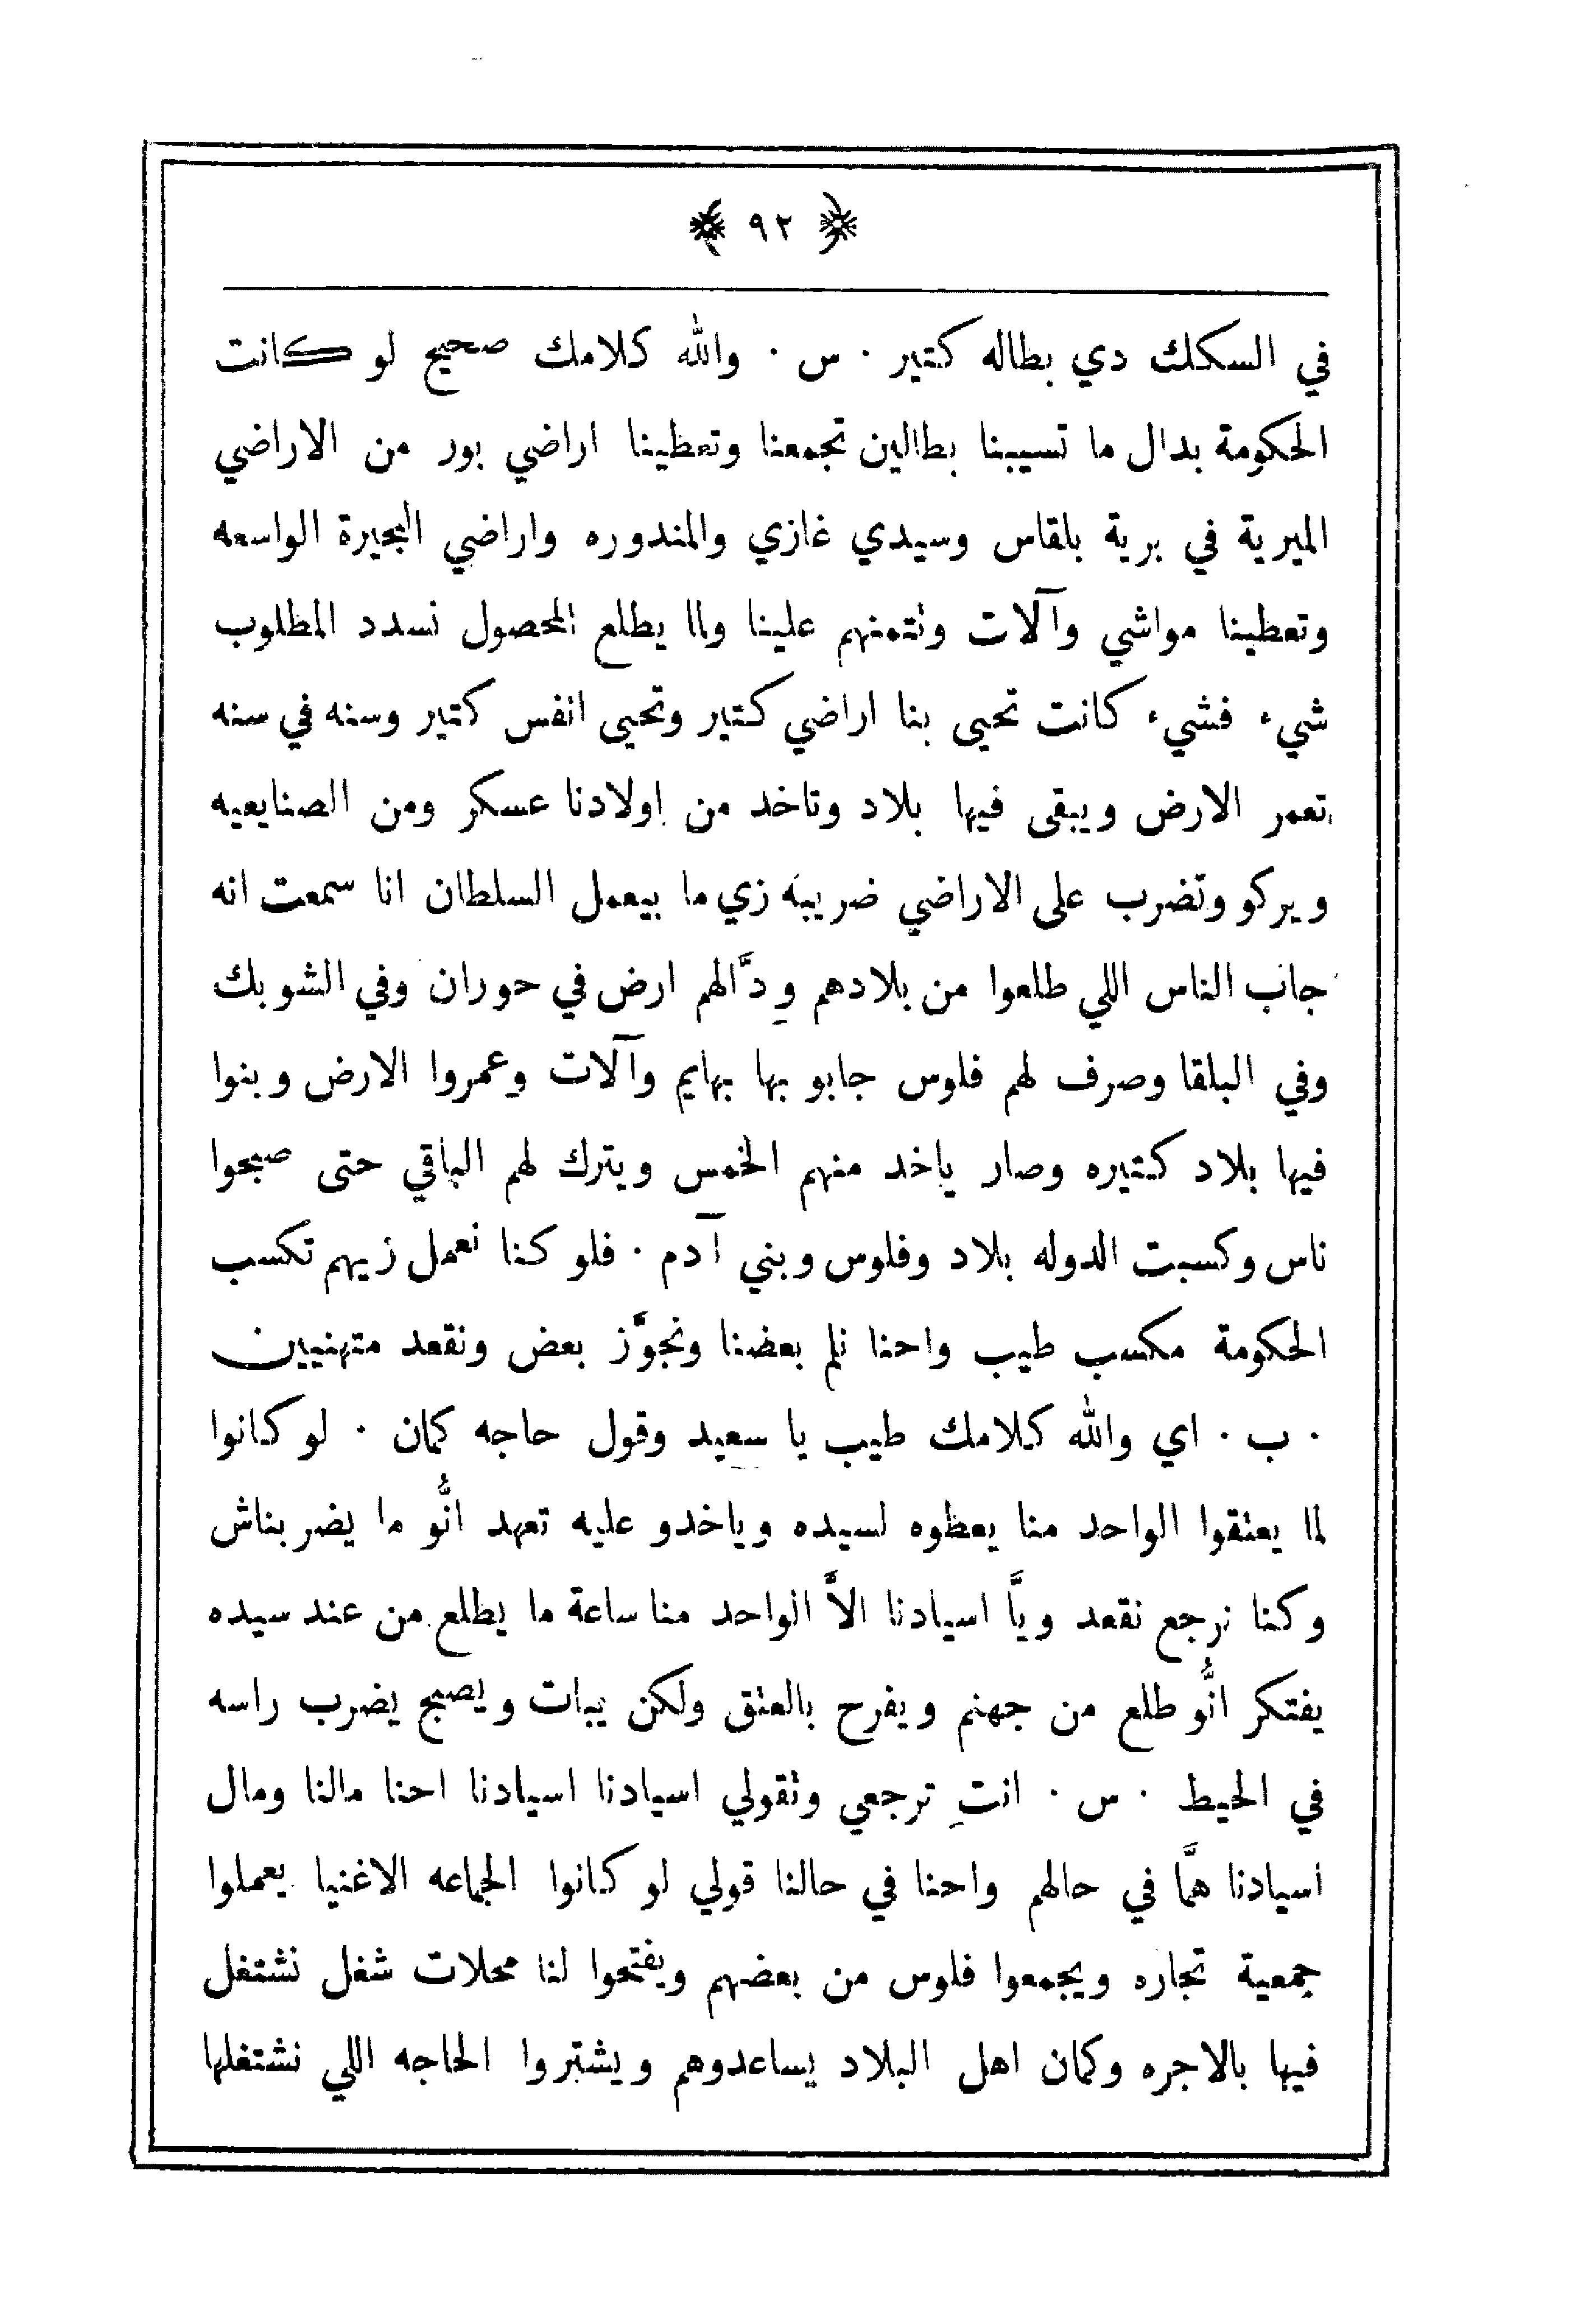 ﴿ ٩٢ ﴾
في السكك دي بطاله كتير ٠ س ٠ والله كلامك صحيح لو كانت
الحكومة بدال ما تسيبنا بطالين تجمعنا وتعطينا اراضي بور من الاراضي
الميرية في برية بلقاس وسيدي غازي والمندوره واراضي البحيرة الواسعه
وتعطينا مواشي وآلات ونتمنهم علينا ولما يطلع المحصول نسدد المطلوب
شيء فشيء كانت تحيى بنا اراضي كتير وتحيى انفس كتير وسنه في سنه
تعمر الارض ويبقى فيها بلاد وتاخد من اولادنا عسكر ومن الصنايعيه
ويركو وتضرب على الاراضي ضريبه زي ما بيعمل السلطان انا سمعت انه
جاب الناس اللي طلعوا من بلادهم وِدَّالهم ارض في حوران وفي الشوبك
وفي البلقا وصرف لهم فلوس جابو بها بهايم وآلات وعمروا الارض وبنوا
فيها بلاد كتيره وصار ياخد منهم الخمس ويترك لهم الباقي حتى صبحوا
ناس وكسبت الدوله بلاد وفلوس وبني آدم ٠ فلو كنا نعمل زيهم تكسب
الحكومة مكسب طيب واحنا نلم بعضنا ونجوَّز بعض ونقعد متهنيين
٠ ب ٠ اي والله كلامك طيب يا سعيد وقول حاجه كمان ٠ لو كانوا
لما يعتقوا الواحد منا يعطوه لسيده وياخدو عليه تعهد انُّو ما يضربناش
وكنا نرجع نقعد ويَّا اسيادنا الاَّ الواحد منا ساعة ما يطلع من عند سيده
يفتكر انُّو طلع من جهنم ويفرح بالعتق ولكن يبات ويصبح يضرب راسه
في الحيط ٠ س ٠ انتِ ترجعي ولقولي اسيادنا اسيادنا احنا مالنا ومال
اسيادنا همَّا في حالهم واحنا في حالنا قولي لو كانوا الجماعه الاغنيا يعملوا
جمعية تجاره ويجمعوا فلوس من بعضهم ويفتحوا لنا محلات شغل نشتغل
فيها بالاجره وكمان اهل البلاد يساعدوهم ويشتروا الحاجه اللي نشتغلها